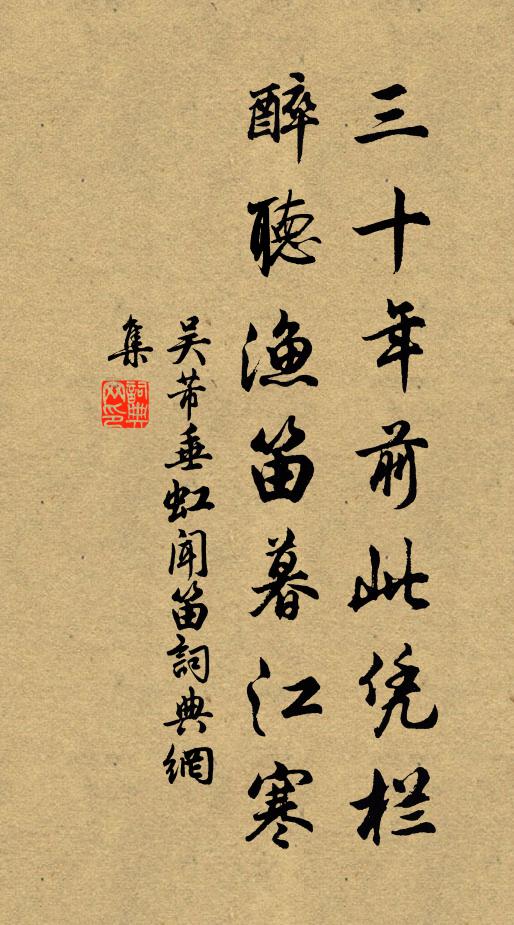 三十年前此凭栏
醉聽漁笛暮江寒
吴芾垂虹闻笛詞典網
集
詞典网印